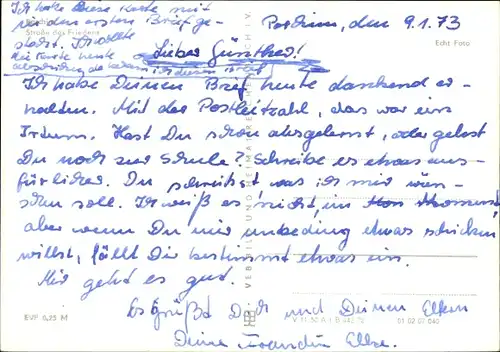 Ich habe diese Karte mit
in den ersten Brief ge-
steckt. Ich wollte
die Karte heute
Straße des Friedens
Parchim, den 9.1.73
Echt Foto
Lieber Günther!
Ich habe Deinen Brief heute dankend er-
halten. Mit der Postleitzahl, das war ein
Irrtum. Hast Du schon ausgelernt, oder gehst
Du noch zur Schule? Schreibe es etwas aus-
führlicher. Du schreibst was ich mir wün-
schen soll. Ich weiß es nicht, im Moment,
aber wenn Du mir unbeding etwas schicken
willst, fällt Dir bestimmt etwas ein.
Mir geht es gut.
Es Grüßt Dich und Deinen Eltern
Deine Freundin Elke.
EVP 0,25 M
01 02 07 040